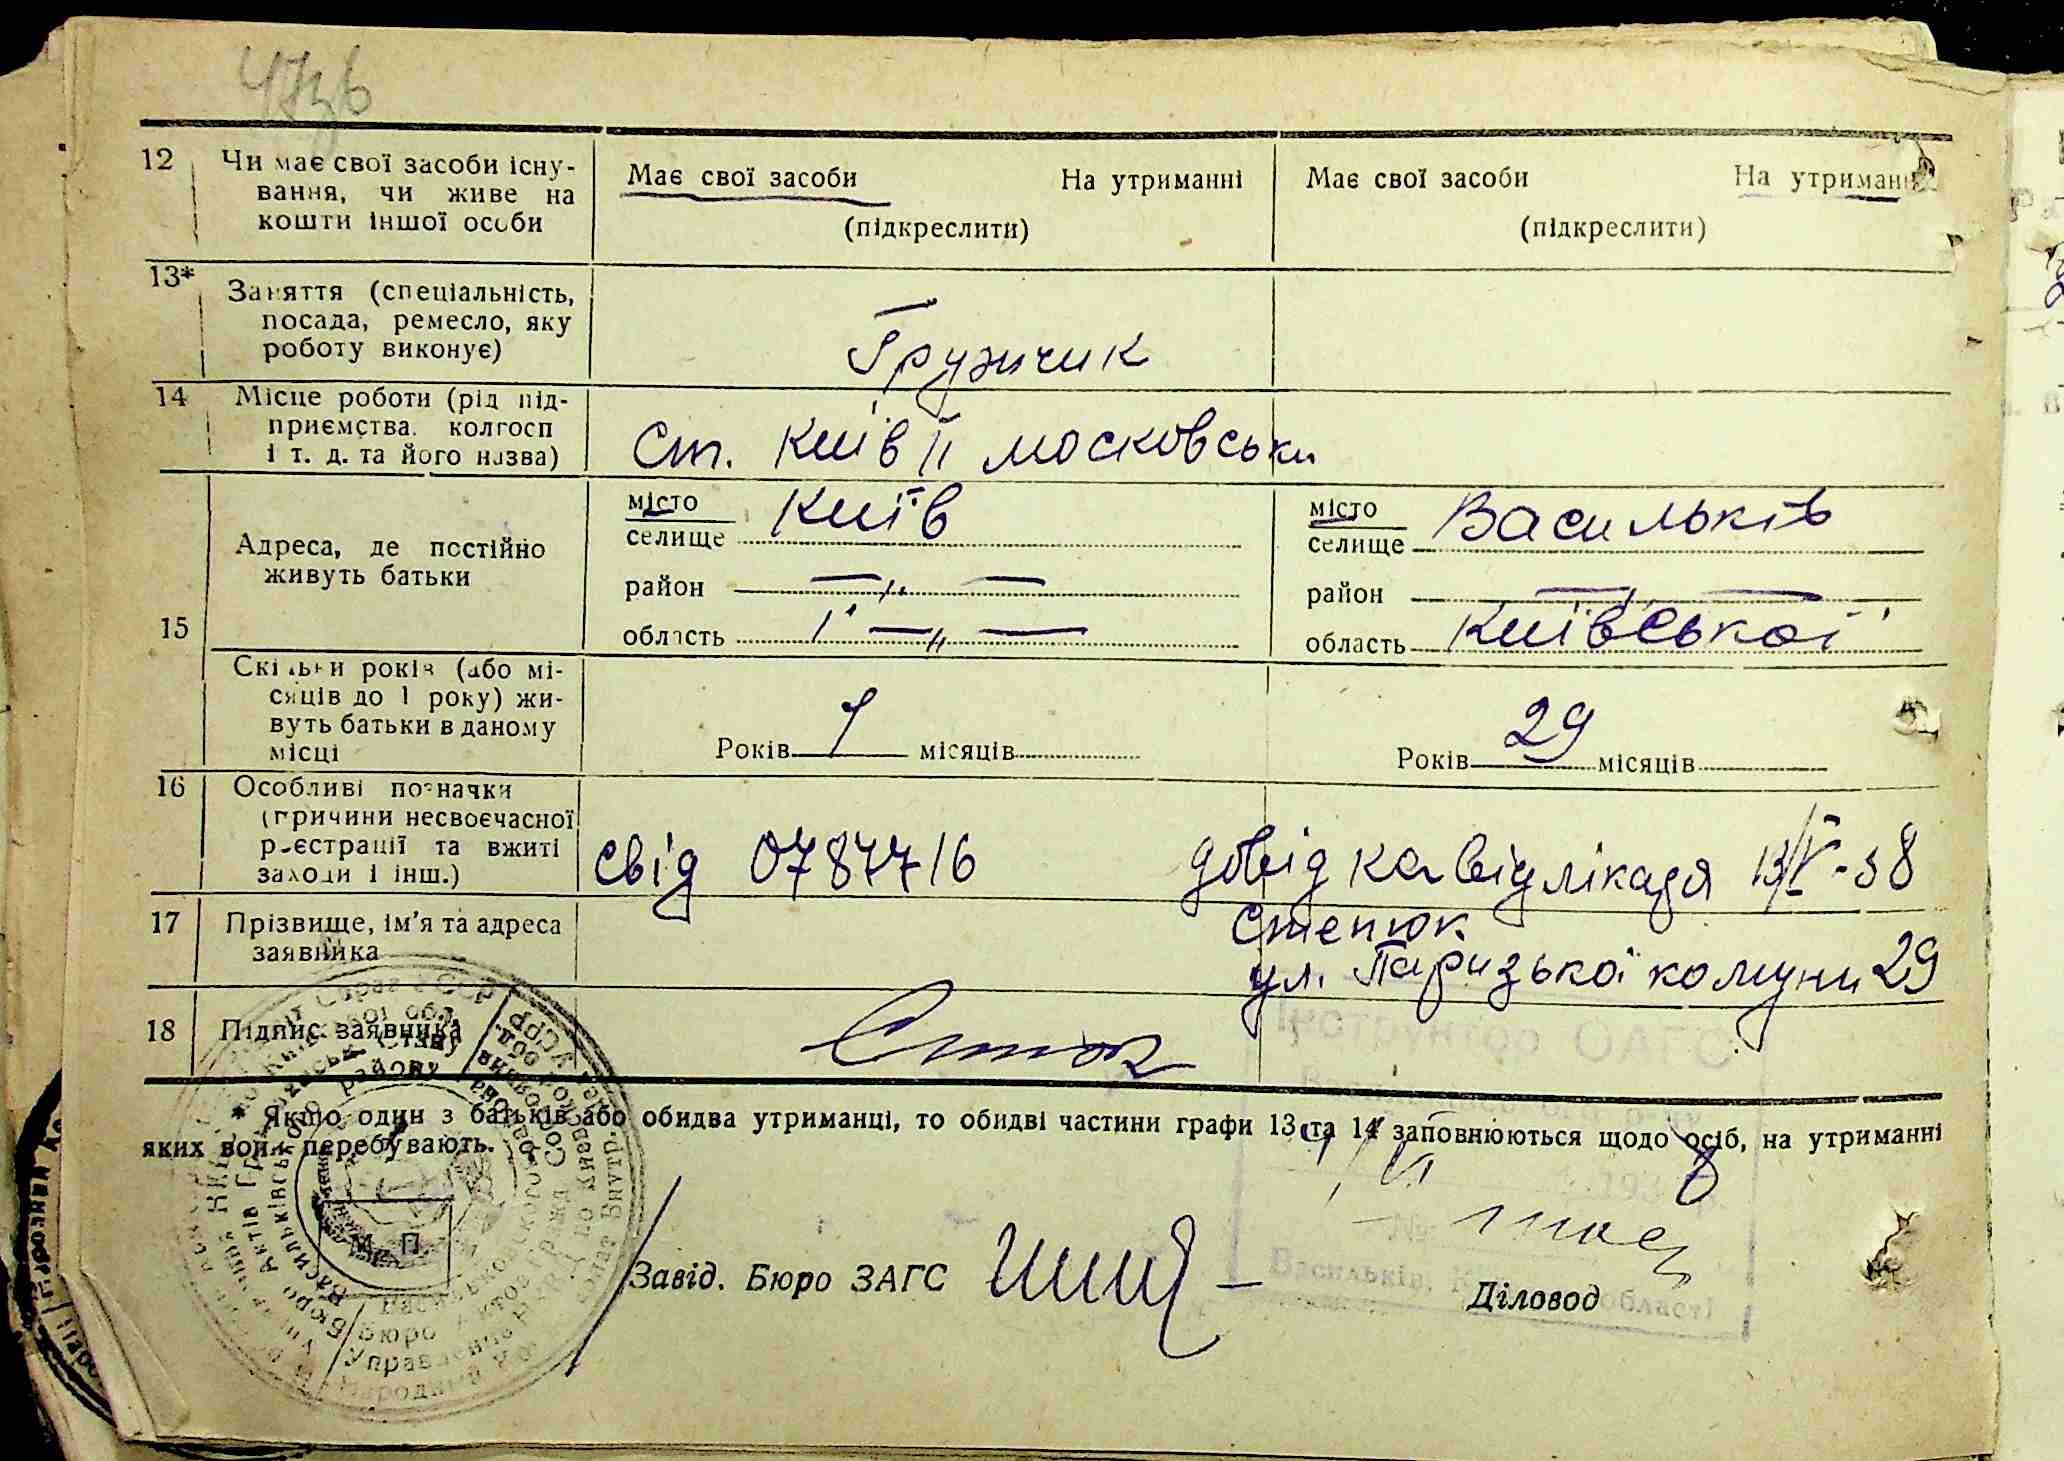 12 Чи має свої засоби існу-
вання, чи живе на
кошти іншої особи
Має свої засоби На утриманні
(підкреслити)
Має свої засоби На утриманні
(підкреслити)
13* Заняття (спеціальність,
посада, ремесло, яку
роботу виконує)
Грузчик
14 Місце роботи (рід під-
приємства, колгосп
і т. д. та його назва)
Ст. Київ II московськи
15 Адреса, де постійно
живуть батьки
місто
селище Київ
район —„—
область —„—
місто
селище Васильків
район
область Київської
Скільки років (або мі-
сяців до 1 року) жи-
вуть батьки в даному
місці
Років 1 місяців
Років 29 місяців
16 Особливі позначки
(причини несвоєчасної
реєстрації та вжиті
заходи і інш.)
свід 0787716 довідка від лікаря 13/V-38
17 Прізвище, ім'я та адреса
заявника
Степюк
ул. Паризької комуни 29
18 Підпис заявника
* Якщо один з батьків або обидва утриманці, то обидві частини графи 13 та 14 заповнюються щодо осіб, на утриманні
яких вони перебувають.
Інструктор ОАГС
193
№
М П
Завід. Бюро ЗАГС
Васильків, області
Діловод